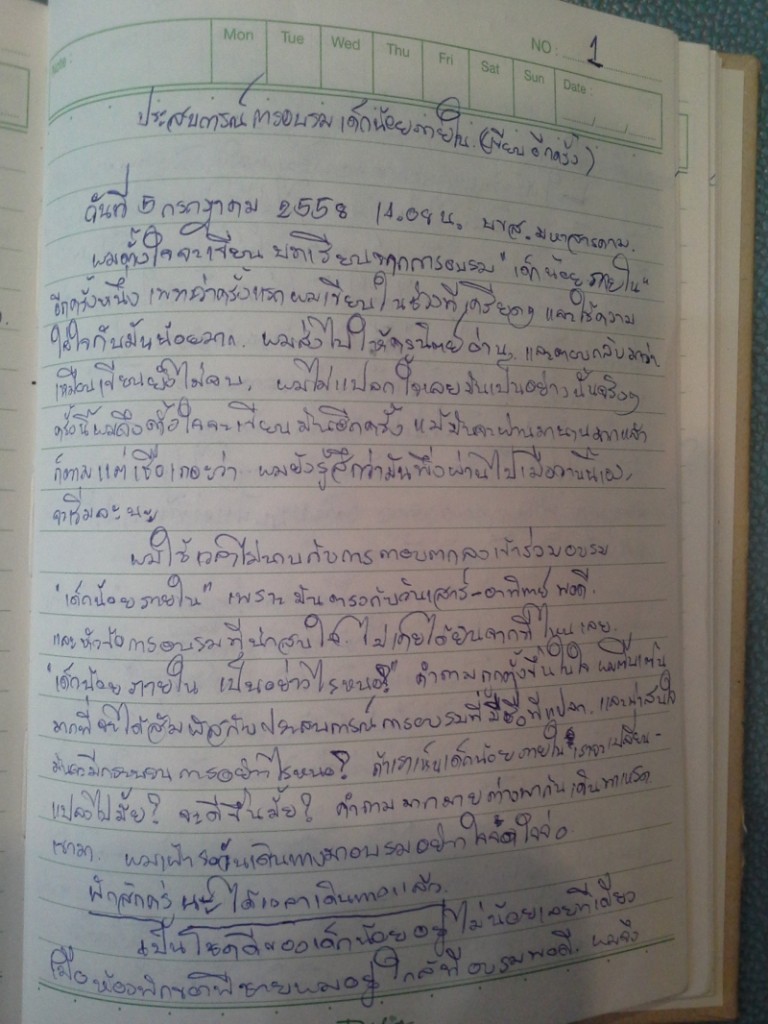 Note :
Mon Tue Wed Thu Fri Sat Sun
NO : 1
Date :
ประสบการณ์การอบรมเด็กน้อยภายใน. (เขียนอีกครั้ง)
วันที่ 5 กรกฎาคม 2558 14.08 น. บขส. มหาสารคาม.
ผมตั้งใจจะเขียน บทเรียนจากการอบรม "เด็กน้อยภายใน"
อีกครั้งหนึ่ง เพราะว่าครั้งแรกผมเขียนในช่วงที่เครียดๆ และใช้ความ
ใส่ใจกับมันน้อยมาก. ผมส่งไปให้ครูอ่าน, และตอบกลับมาว่า
เหมือนเขียนยังไม่จบ, ผมไม่แปลกใจเลยมันเป็นอย่างนั้นจริงๆ
ครั้งนี้ผมถึงตั้งใจจะเขียนมันอีกครั้ง แม้มันจะผ่านมานานมากแล้ว
ก็ตามแต่เชื่อเถอะว่า ผมยังรู้สึกว่ามันพึ่งผ่านไปเมื่อวานนี้เอง,
จะเริ่มละนะ
ผมใช้เวลาไม่นานกับการตอบตกลงเข้าร่วมอบรม
"เด็กน้อยภายใน" เพราะมันตรงกับวันเสาร์-อาทิตย์ พอดี.
และหัวข้อการอบรมที่น่าสนใจ. ไม่เคยได้ยินจากที่ไหนเลย.
"เด็กน้อยภายใน เป็นอย่างไรหนอ?" คำถามถูกตั้งขึ้นในใจ ผมตื่นเต้น
มากที่จะได้สัมผัสกับประสบการณ์การอบรมที่มีชื่อที่แปลก. และน่าสนใจ
มันจะมีกระบวนการอย่างไรหนอ? ถ้าเราเห็นเด็กน้อยภายใน เราจะเปลี่ยน-
แปลงไปมั้ย? จะดีขึ้นมั้ย? คำถามมากมายต่างพากันเดินพาเหรด
เข้ามา. ผมเฝ้ารอวันเดินทางมาอบรมอย่างใจจดใจจ่อ
พักสักครู่ นะ ได้เวลาเดินทางแล้ว.
เป็นโชคดีของเด็กน้อยอยู่ไม่น้อยเลยทีเดียว
เมื่อห้องพักของพี่ชายผมอยู่ใกล้ที่อบรมพอดี. ผมจึง